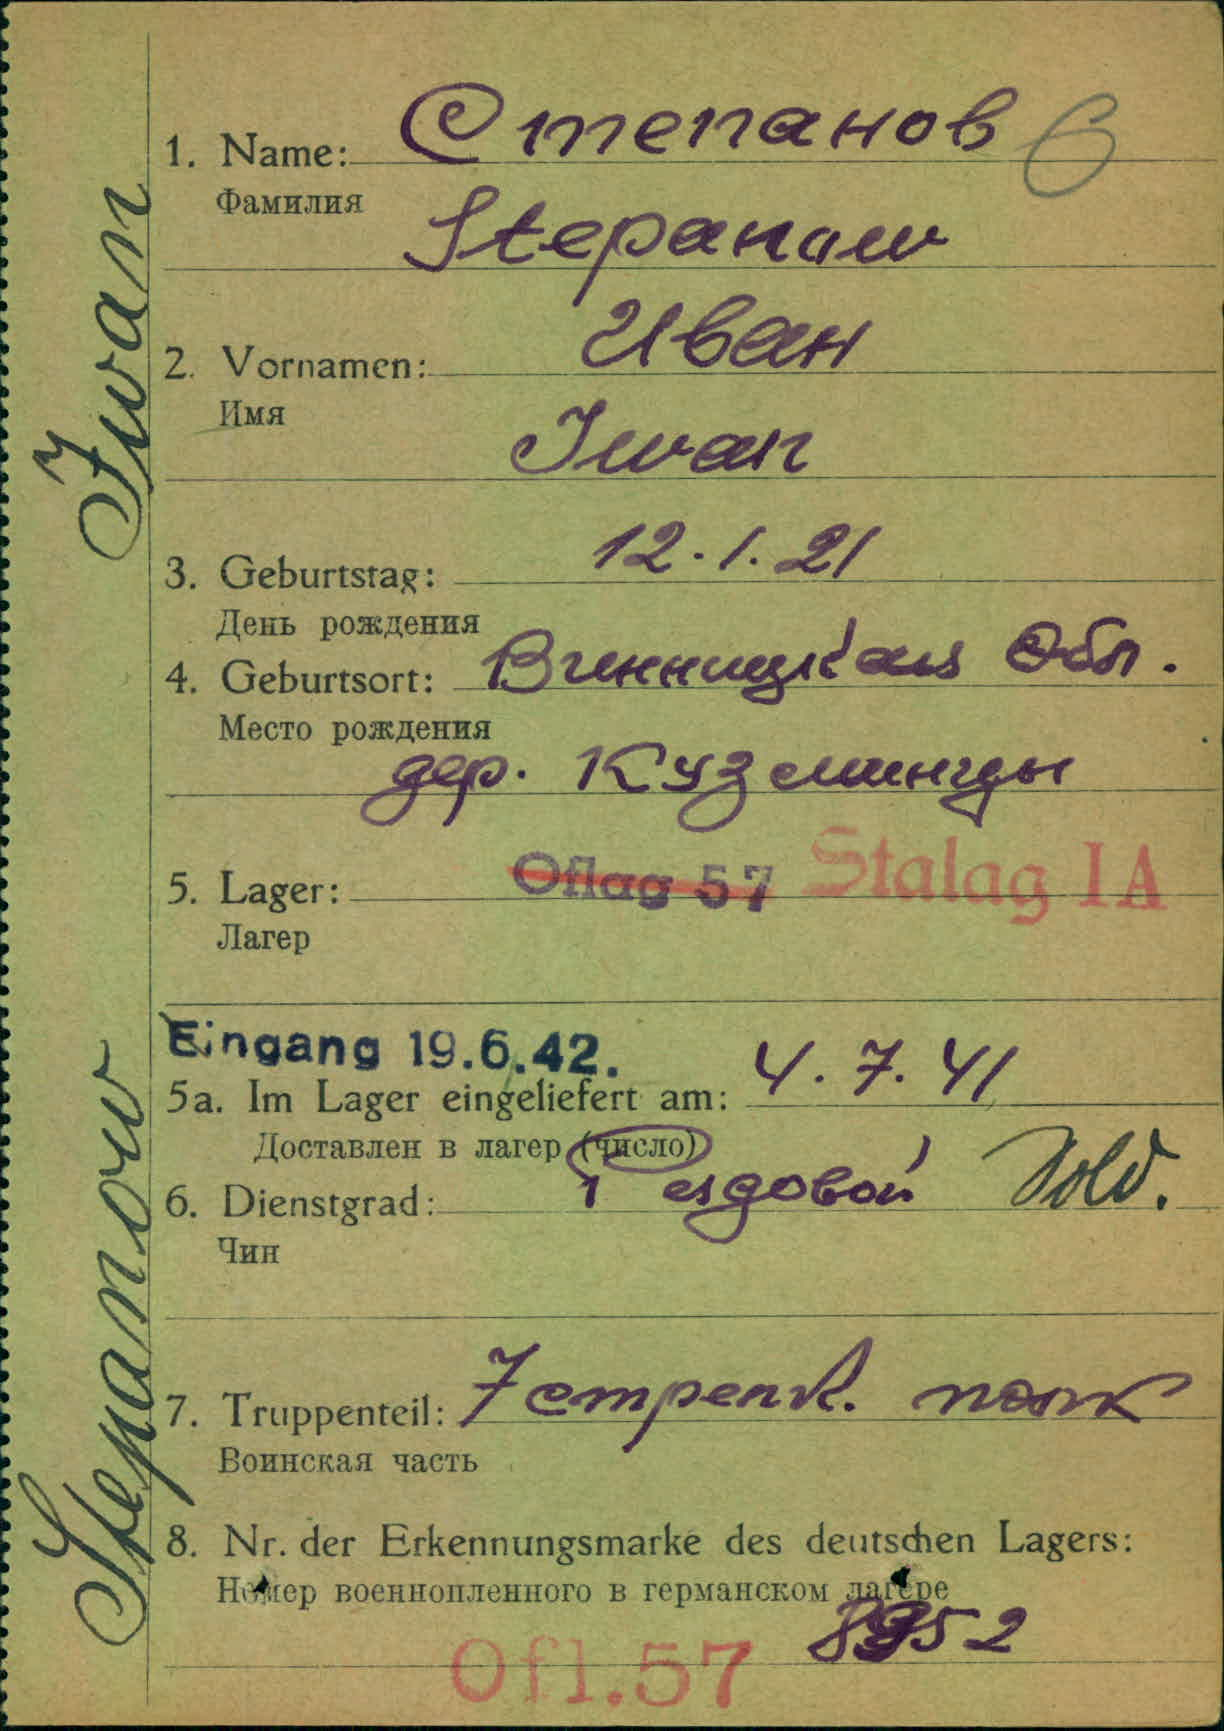 1. Name: Степанов 6
Фамилия
Stepanow
2. Vornamen: Иван
Имя
Iwan
3. Geburtstag: 12.1.21
День рождения
4. Geburtsort: Винницкая Обл.
Место рождения
дер. Кузминцы
5. Lager: Oflag 57 Stalag IA
Лагер
Eingang 19.6.42.
5a. Im Lager eingeliefert am: 4.7.41
Доставлен в лагер (число)
6. Dienstgrad: Рядовой Sold.
Чин
7. Truppenteil: 7 стрелк. полк
Воинская часть
8. Nr. der Erkennungsmarke des deutschen Lagers:
Номер военнопленного в германском лагере
8952
Ofl.57
Stepanow Iwan